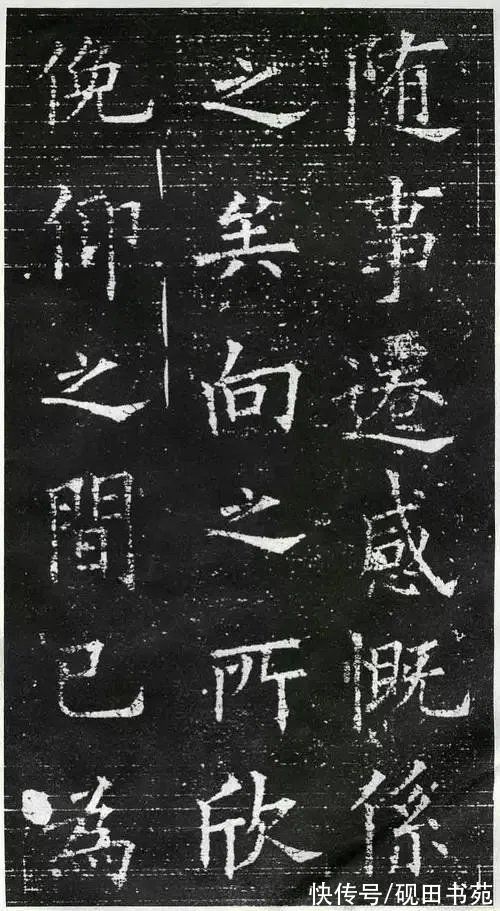 随事遷感慨係
之矣向之所欣
俛仰之間已為
快传号/砚田书苑